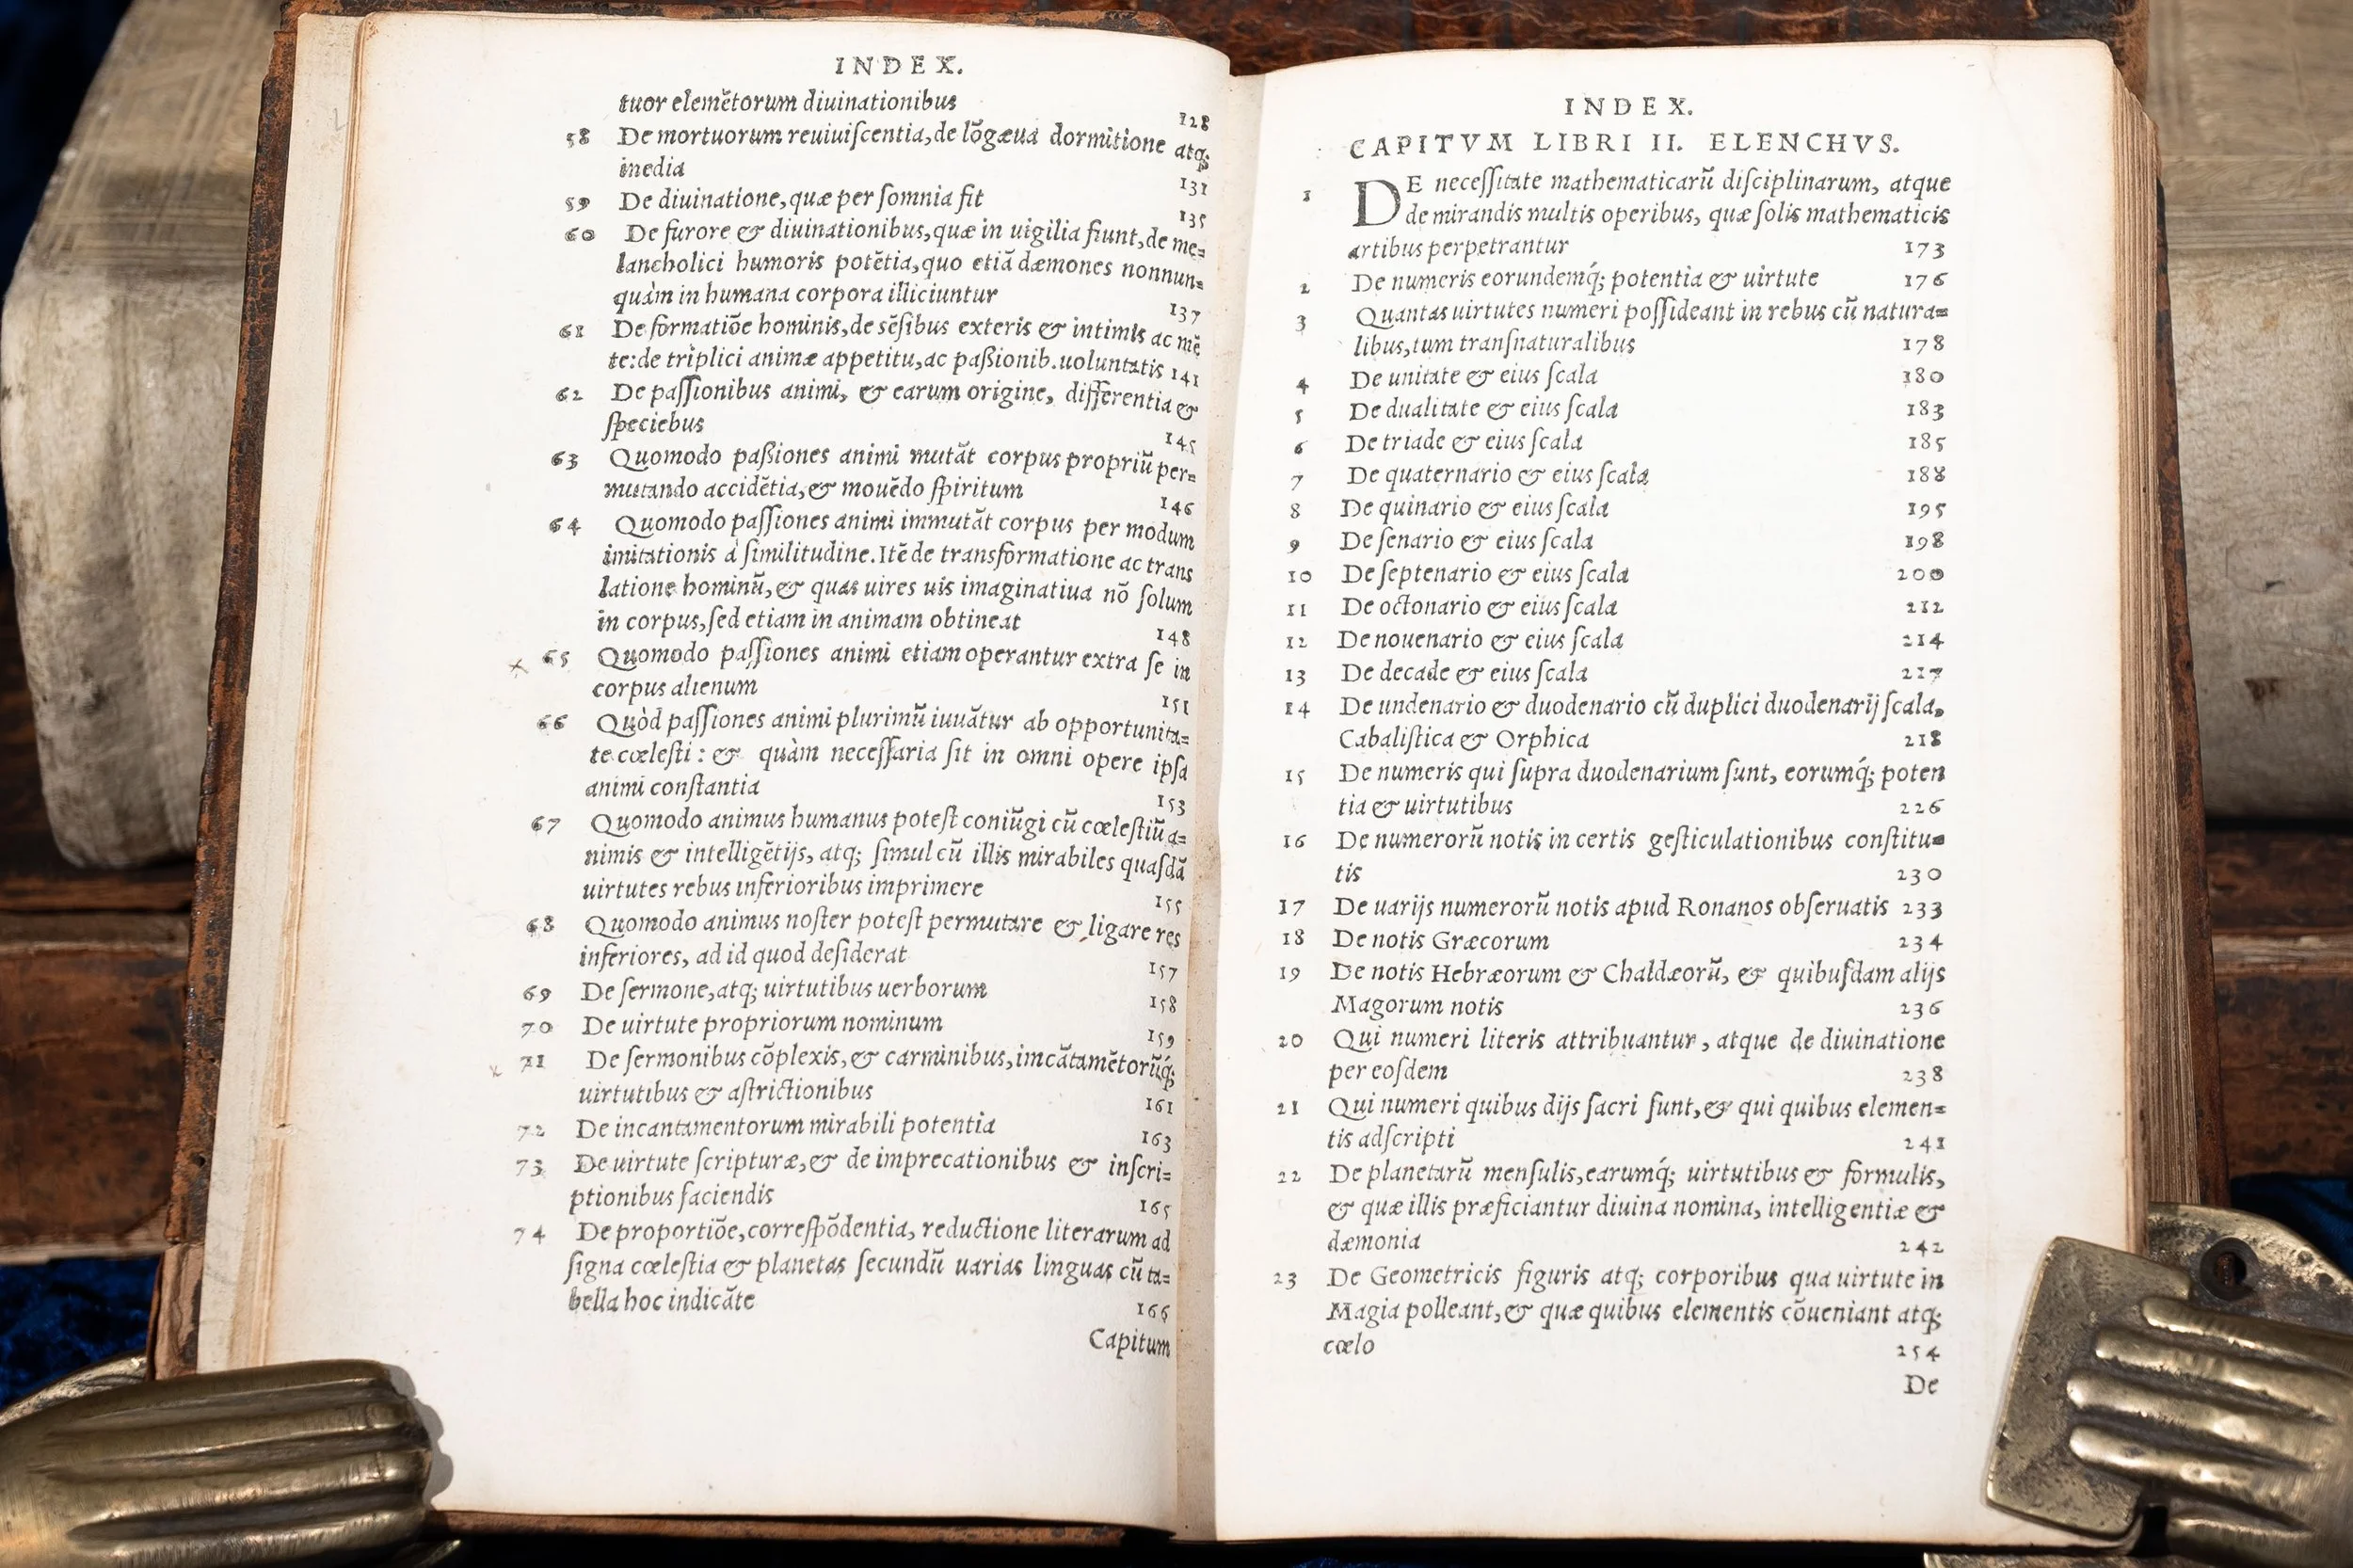 INDEX.
tuor elemētorum diuinationibus 128
58 De mortuorum reuiuiſcentia, de lōgæua dormitione atq;
inedia 131
59 De diuinatione, quæ per ſomnia fit 135
60 De furore & diuinationibus, quæ in uigilia fiunt, de me=
lancholici humoris potētia, quo etiā dæmones nonnun=
quàm in humana corpora illiciuntur 137
61 De formatiōe hominis, de sēſibus exteris & intimis ac mē
te: de triplici animæ appetitu, ac paßionib. uoluntatis 141
62 De paſſionibus animi, & earum origine, differentia &
ſpeciebus 145
63 Quomodo paßiones animi mutāt corpus propriū per=
mutando accidētia, & mouēdo ſpiritum 146
64 Quomodo paſſiones animi immutāt corpus per modum
imitationis à ſimilitudine. Itē de transformatione ac trans
latione hominū, & quas uires uis imaginatiua nō ſolum
in corpus, ſed etiam in animam obtineat 148
65 Quomodo paſſiones animi etiam operantur extra ſe in
corpus alienum 151
66 Quòd paſſiones animi plurimū iuuātur ab opportunita=
te cœleſti: & quàm neceſſaria ſit in omni opere ipſa
animi conſtantia 153
67 Quomodo animus humanus poteſt coniūgi cū cœleſtiū a=
nimis & intelligētijs, atq; ſimul cū illis mirabiles quaſdā
uirtutes rebus inferioribus imprimere 155
68 Quomodo animus noſter poteſt permutare & ligare res
inferiores, ad id quod deſiderat 157
69 De ſermone, atq; uirtutibus uerborum 158
70 De uirtute propriorum nominum 159
71 De ſermonibus cōplexis, & carminibus, imcātamētorūq́;
uirtutibus & aſtrictionibus 161
72 De incantamentorum mirabili potentia 163
73 De uirtute ſcripturæ, & de imprecationibus & inſcri=
ptionibus faciendis 165
74 De proportiōe, correſpōdentia, reductione literarum ad
ſigna cœleſtia & planetas ſecundū uarias linguas cū ta=
bella hoc indicāte 166
Capitum
INDEX.
CAPITVM LIBRI II. ELENCHVS.
1 DE neceſſitate mathematicarū diſciplinarum, atque
de mirandis multis operibus, quæ ſolis mathematicis
artibus perpetrantur 173
2 De numeris eorundemq́; potentia & uirtute 176
3 Quantas uirtutes numeri poſſideant in rebus cū natura=
libus, tum tranſnaturalibus 178
4 De unitate & eius ſcala 180
5 De dualitate & eius ſcala 183
6 De triade & eius ſcala 185
7 De quaternario & eius ſcala 188
8 De quinario & eius ſcala 195
9 De ſenario & eius ſcala 198
10 De ſeptenario & eius ſcala 200
11 De octonario & eius ſcala 212
12 De nouenario & eius ſcala 214
13 De decade & eius ſcala 217
14 De undenario & duodenario cū duplici duodenarij ſcala,
Cabaliſtica & Orphica 218
15 De numeris qui ſupra duodenarium ſunt, eorumq́; poten
tia & uirtutibus 226
16 De numerorū notis in certis geſticulationibus conſtitu=
tis 230
17 De uarijs numerorū notis apud Ronanos obſeruatis 233
18 De notis Græcorum 234
19 De notis Hebræorum & Chaldæorū, & quibuſdam alijs
Magorum notis 236
20 Qui numeri literis attribuantur, atque de diuinatione
per eoſdem 238
21 Qui numeri quibus dijs ſacri ſunt, & qui quibus elemen=
tis adſcripti 241
22 De planetarū menſulis, earumq́; uirtutibus & formulis,
& quæ illis præficiantur diuina nomina, intelligentiæ &
dæmonia 242
23 De Geometricis figuris atq; corporibus qua uirtute in
Magia polleant, & quæ quibus elementis cōueniant atq;
cœlo 254
De